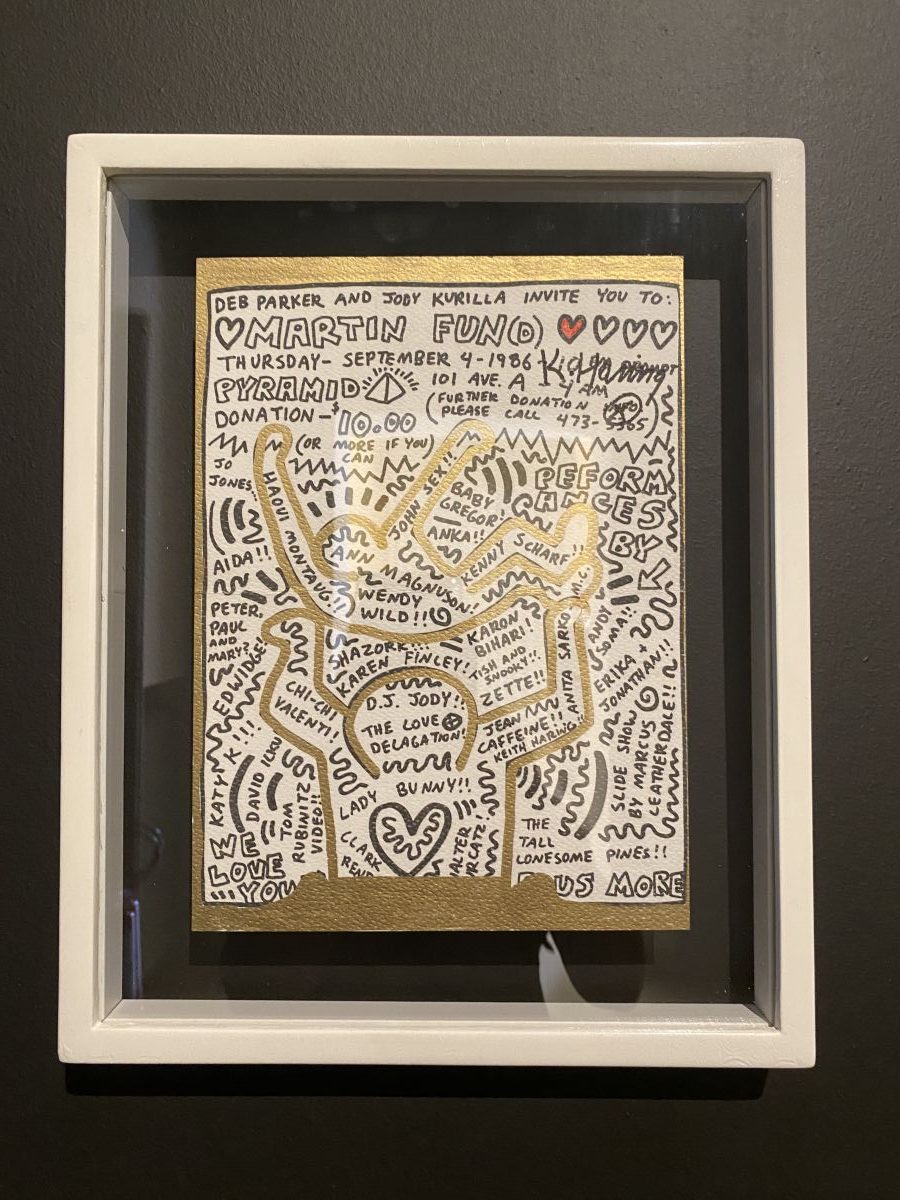 DEB PARKER AND JODY KURILLA INVITE YOU TO:
MARTIN FUN(D)
THURSDAY- SEPTEMBER 4-1986
PYRAMID 101 AVE. A
4 AM
DONATION-$10.00
(FURTHER DONATION INFO
PLEASE CALL 473-5365)
(OR MORE IF YOU
CAN)
JO
JONES...
HAOUI MONTAUG!!
JOHN SEX!!
BABY
GREGOR!
ANKA!!
PEFORM
ANCES
BY
KENNY SCHARF!!
AIDA!!
ANN MAGNUSON!
WENDY
WILD!!
PETER,
PAUL
AND
MARY?
EDWIDGE!
SHAZORK!!!
KAREN FINLEY!
KARON
BIHARI!
TISH AND
SNOOKY!!
ZETTE!!
ANITA SARKO
ANDY
SOMA!!
ERIKA +
JONATHAN!!
CHI-CHI
VALENTI!
D.J. JODY!!
THE LOVE
DELAGATION!
JEAN
CAFFEINE!!
KEITH HARING!!
KATY K!!!
DAVID ILKU
TOM
RUBINITZ
VIDEO!!
LADY BUNNY!!
SLIDE SHOW
BY MARCUS
LEATHERDALE!!
THE
TALL
LONESOME PINES!!
WE
LOVE
YOU
CLARK
MORE